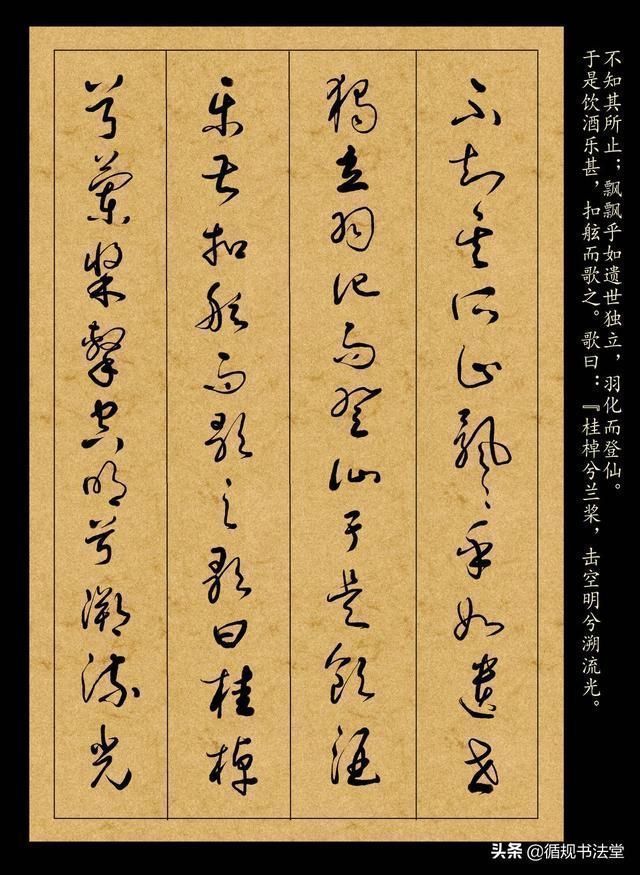 不知其所止飘々乎如遗世
独立羽化而登仙于是饮酒
乐甚扣舷而歌之歌曰桂棹
兮兰桨击空明兮溯流光
不知其所止；飘飘乎如遗世独立，羽化而登仙。
于是饮酒乐甚，扣舷而歌之。歌曰：『桂棹兮兰桨，击空明兮溯流光。
头条 @循规书法堂